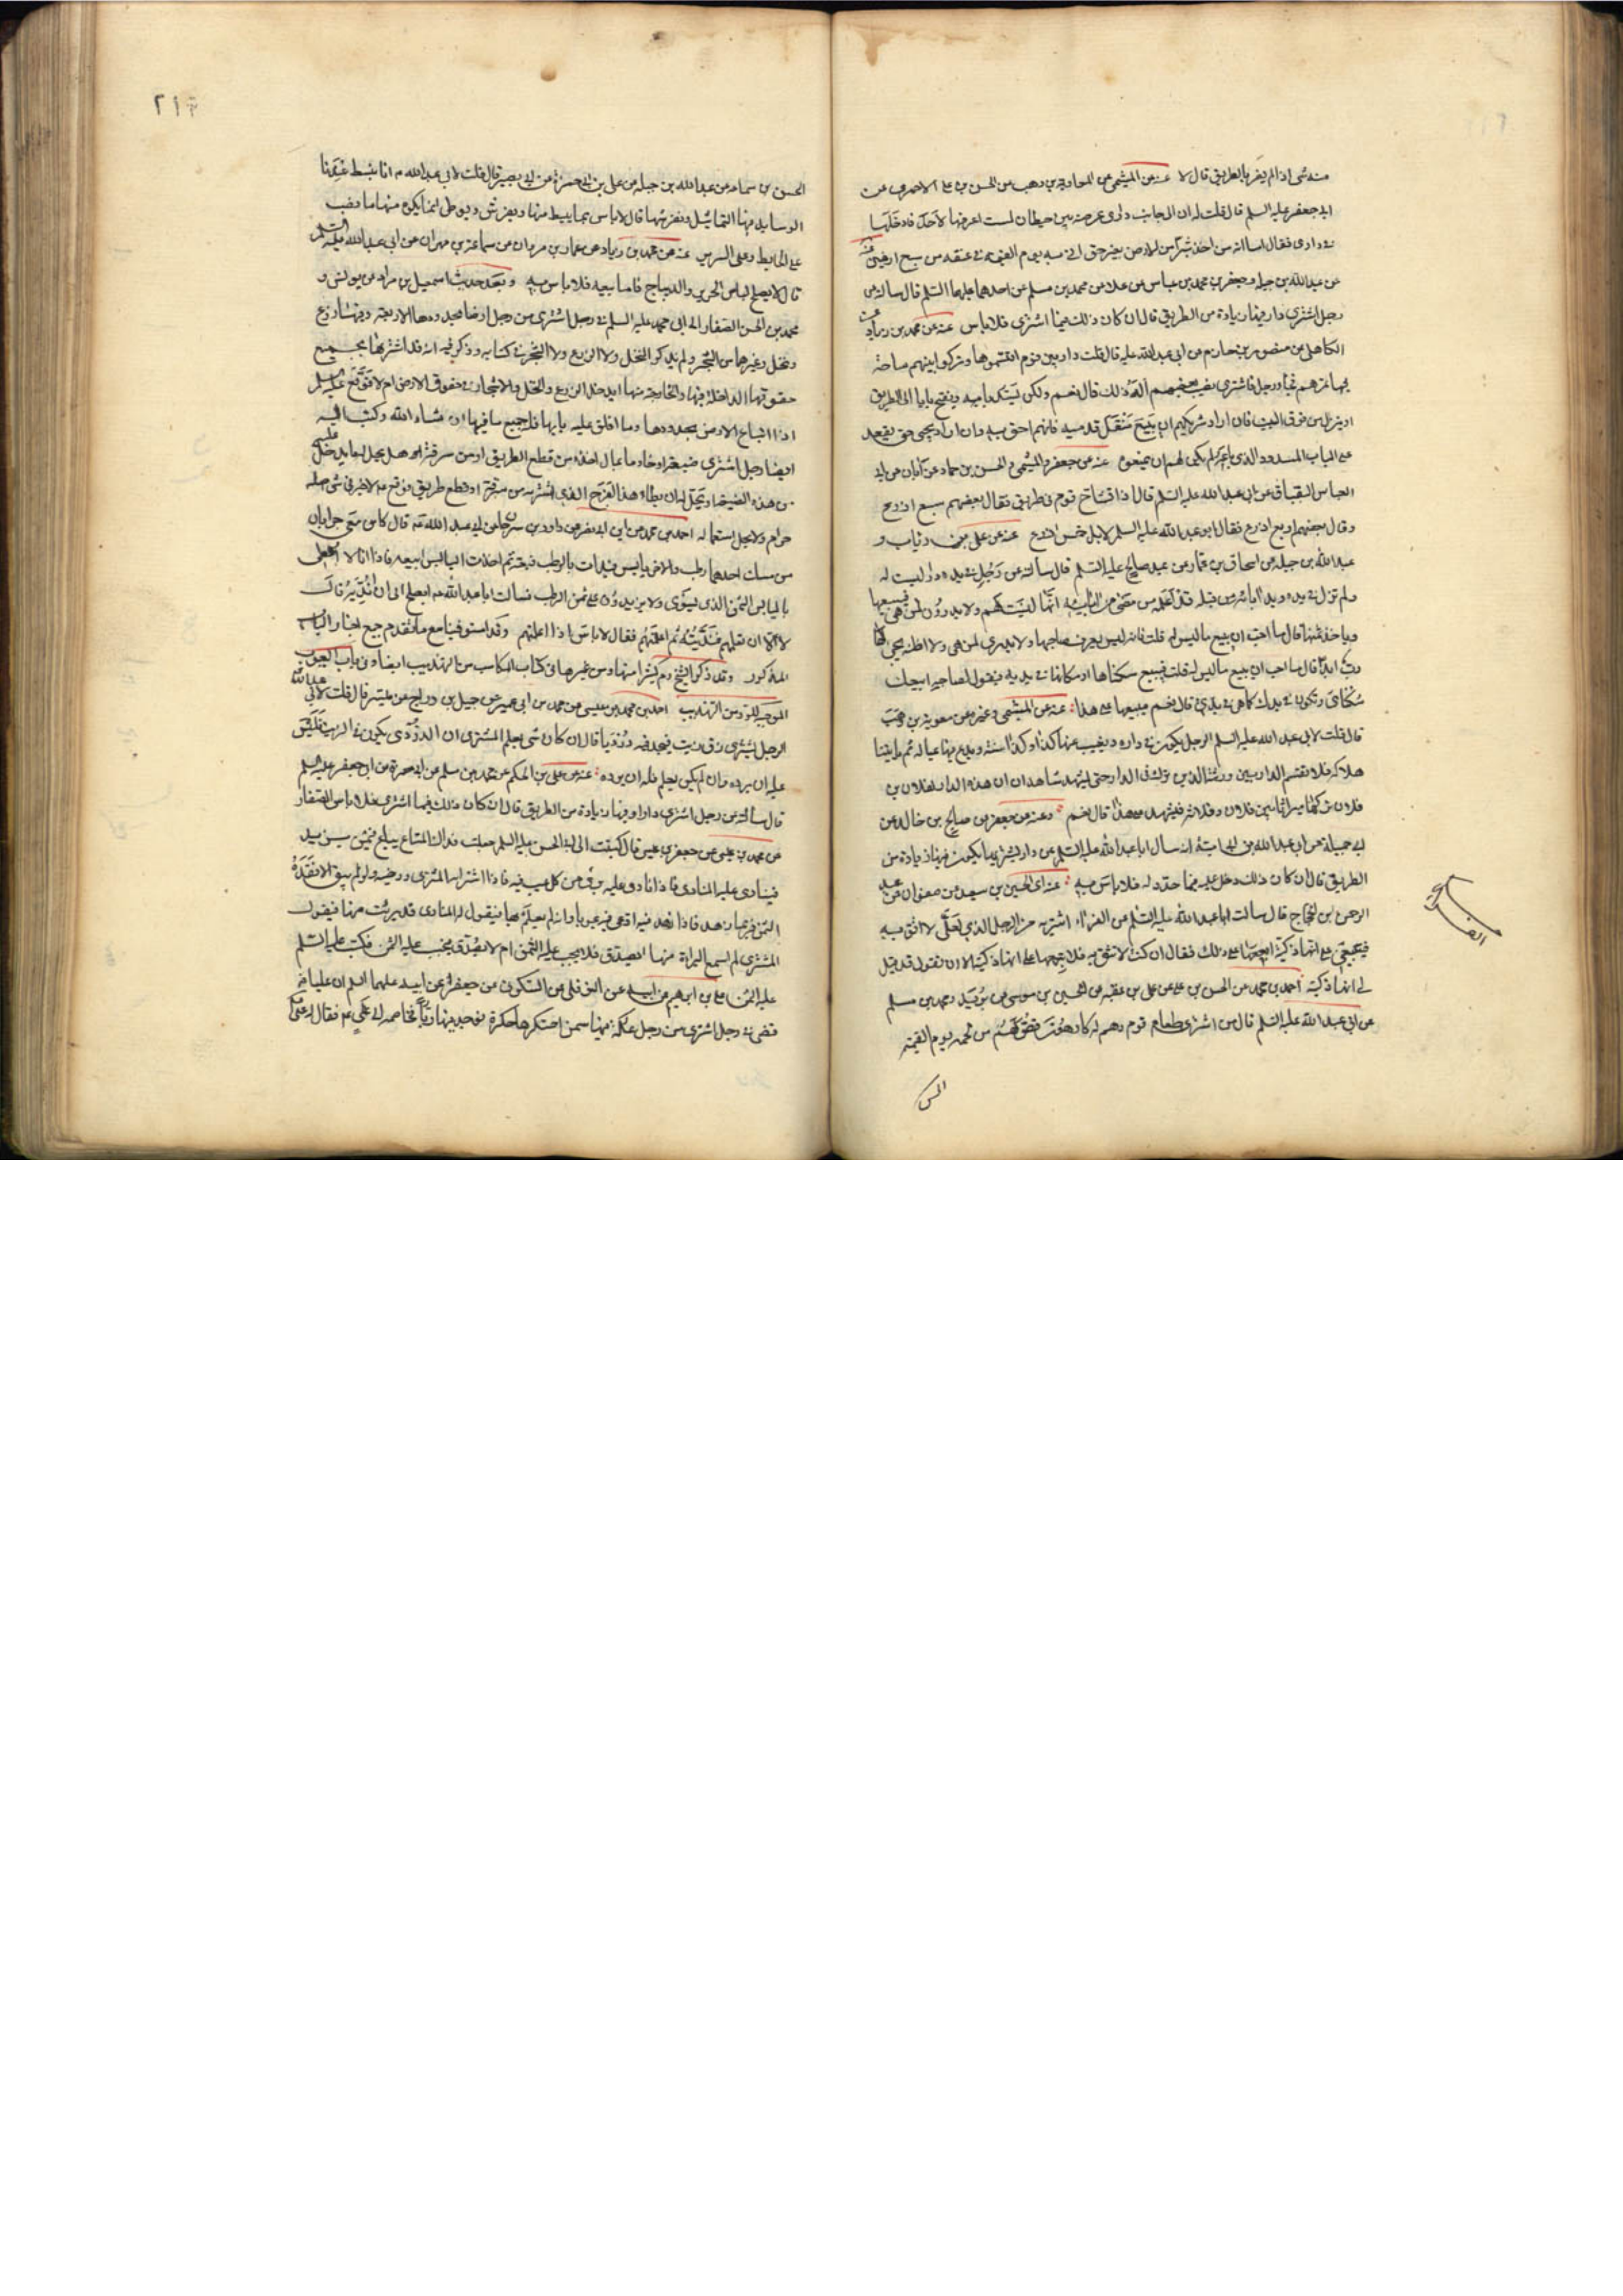 منه شى اذا لم يضر بالطريق قال لا عنه عن الميثمى عن معاوية بن وهب عن الحسن بن على الاحمرى عن
ابى جعفر عليه السلم قال قلت له ان الى جانب دارى عرصة بين حيطان لست اعرفها لاحد فادخلها
فى دارى فقال اما انه من اخذ شبرا من الارض بغير حق اتى به يوم القيمة فى عنقه من سبع ارضين عنه
عن عبدالله بن جبلة وجعفر بن محمد بن عباس عن علا عن محمد بن مسلم عن احدهما عليهما السلم قال سالته عن
رجل اشترى دارا فيها زيادة من الطريق قال ان كان ذلك فيما اشترى فلا باس عنه عن محمد بن زياد عن
الكاهلى عن منصور بن حازم عن ابى عبد الله عليه قال قلت دار بين قوم اقتسموها وتركوا بينهم ساحة
فيها ممرهم فجاء رجل فاشترى نصيب بعضهم اله ذلك قال نعم ولكن يسد بابه ويفتح بابا الى الطريق
او ينزل من فوق البيت فان اراد شريكهم ان يبيع منقل قدميه فانهم احق به وان اراد يجى حتى يقعد
على الباب المسدود الذى باعه لم يكن لهم ان يمنعوه عنه عن جعفر والميثمى والحسن بن حماد عن ابان عن ابى
العباس البقباق عن ابى عبد الله عليه السلم قال اذا تشاح قوم فى طريق فقال بعضهم سبع اذرع
وقال بعضهم اربع اذرع فقال ابو عبد الله عليه السلم لا بل خمس اذرع عنه عن على بن رئاب و
عبد الله بن جبلة عن اسحاق بن عمار عن عبد صالح عليه السلم قال سالته عن رجل فى يده دار ليست له
ولم تزل فى يده ويد ابائه من قبله قد اعلمه من مضى من ابائه انها ليست لهم ولا يدرون لمن هى فيبيعها
وياخذ ثمنها قال ما احب ان يبيع ما ليس له قلت فانه ليس يعرف صاحبها ولا يدرى لمن هى ولا اظنه يجى لها
رب ابدا قال ما احب ان يبيع ما ليس له قلت فيبيع سكناها او مكانها فى يديه فيقول لصاحبه ابيعك
سكناى وتكون فى يدك كما هى فى يدى قال نعم يبيعها على هذا عنه عن الميثمى وغيره عن معوية بن وهب
قال قلت لابى عبد الله عليه السلم الرجل يكون فى داره ويغيب عنها كذا وكذا سنة ويدع فيها عياله ثم ياتينا
هلاكه فلا تقسم الدار بين ورثته الذين ترك فى الدار حتى يشهد شاهدان ان هذه الدار لفلان بن
فلان تركها ميراثا بين فلان وفلانة فيشهد على هذا قال نعم وعنه عن جعفر عن صالح بن خالد عن
ابى جميلة عن ابى عبد الله بن ابى امية انه سال ابا عبد الله عليه السلم عن دار يشتريها يكون فيها زيادة من
الطريق قال ان كان ذلك دخل عليه فيما حد له فلا باس به عنه اى الحسين بن سعيد عن صفوان عن عبد
الرحمن بن الحجاج قال سالت ابا عبد الله عليه السلم عن الفراء اشتريه من الرجل الذى لعلى لا اثق به
فيبيعنى على انها ذكية ابيعها على ذلك فقال ان كنت لا تثق به فلا تبعها على انها ذكية الا ان تقول قد قيل
لى انها ذكية احمد بن محمد عن الحسن بن على عن على بن عقبة عن الحسين بن موسى عن بريد ومحمد بن مسلم
عن ابى عبد الله عليه السلم قال من اشترى طعام قوم وهم له كارهون قص لهم من لحمه يوم القيمة
الحسن
الفراء
٢١٢
الحسن بن سماعة عن عبد الله بن جبلة عن على بن ابى حمزة عن ابى بصير قال قلت لابى عبد الله ع انا نبسط عندنا
الوسايد فيها التماثيل ونفرشها قال لا باس بما يبسط منها ويفرش ويوطى انما يكره منها ما نصب
على الحايط وعلى السرير عنه عن محمد بن زياد عن عمار بن مروان عن سماعة بن مهران عن ابى عبد الله عليه السلم
قال لا يصلح لباس الحرير والديباج فاما بيعه فلا باس به وبعد حديث اسمعيل بن مراد عن يونس و
محمد بن الحسن الصفار الى ابى محمد عليه السلم فى رجل اشترى من رجل ارضا بحدودها الاربعة وفيها زرع
ونخل وغيرهما من الشجر ولم يذكر النخل ولا الزرع ولا الشجر فى كتابه وذكر فيه انه قد اشتراها بجميع
حقوقها الداخلة فيها والخارجة منها ايدخل الزرع والنخل والاشجار فى حقوق الارض ام لا فوقع عليه السلم
اذا ابتاع الارض بحدودها وما اغلق عليه بابها فله جميع ما فيها ان شاء الله وكتب اليه
ايضا رجل اشترى ضيعة او خادما بمال اخذه من قطع الطريق او من سرقة هل يحل له ما يدخل عليه
من هذه الضيعة او يحل له ان يطاء هذا الفرج الذى اشتريه من سرقة او قطع طريق فوقع ع لا خير فى شى اصله
حرام ولا يحل استعماله احمد بن محمد عن ابن ابى نصر عن داود بن سرحان عن ابى عبد الله ع قال كان معى جرابان
من مسك احدهما رطب والاخر يابس فبدات بالرطب فبعته ثم اخذت اليابس ابيعه فاذا انا لا اعطى
باليابس الثمن الذى يسوى ولا يزيدون على ثمن الرطب فسالت ابا عبد الله ع ايصلح لى ان انديه قال
لا الا ان تعلمهم فنديته ثم اعلمتهم فقال لا باس اذا اعلمتهم وقد استوفينا مع ما تقدم جميع اخبار الباب
المذكور وقد ذكر الشيخ ره كثيرا منها ومن غيرها فى كتاب المكاسب من التهذيب ايضا وفى باب العيوب
الموجبة للرد من التهذيب احمد بن محمد بن عيسى عن محمد بن ابى عمير عن جميل بن دراج عن ميسر قال قلت لابى عبد الله
الرجل يشترى زق زيت فيجد فيه درديا قال ان كان شى يعلم المشترى ان الدردى يكون فى الزيت فليس
عليه ان يرده وان لم يكن يعلم فله ان يرده عنه عن على بن الحكم عن محمد بن مسلم عن ابى حمزة عن ابى جعفر عليه السلم
قال سالته عن رجل اشترى دارا وفيها زيادة من الطريق قال ان كان ذلك فيما اشترى فلا باس الصفار
عن محمد بن عيسى عن جعفر بن عيسى قال كتبت الى ابى الحسن عليه السلم جعلت فداك المتاع يباع فيمن يزيد
فينادى عليه المنادى فاذا نادى عليه برى من كل عيب فيه فاذا اشتراه المشترى ورضيه ولم يبق الا نقده
الثمن فربما زهد فاذا زهد فيه ادعى فيه عيوبا وانه لم يعلم بها فيقول له المنادى قد برئت منها فيقول
المشترى لم اسمع البراءة منها ايصدق فلا يجب عليه الثمن ام لا يصدق فيجب عليه الثمن فكتب عليه السلم
عليه الثمن على بن ابرهيم عن ابيه عن النوفلى عن السكونى عن جعفر عن ابيه عليهما السلم ان عليا ع
قضى فى رجل اشترى من رجل عكة فيها سمن احتكرها حكرة فوجد فيها ربا فخاصمه الى على ع فقال له على ع